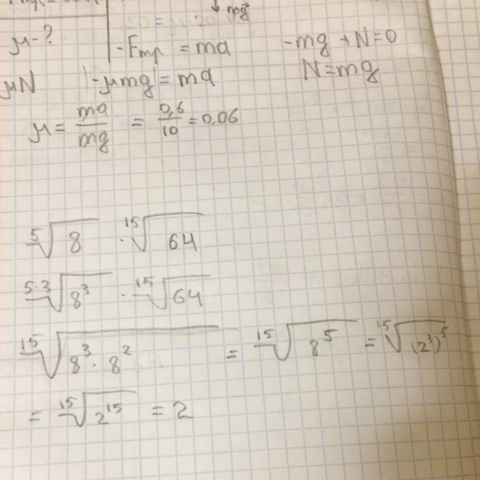 mg
μ-? -Fтр = ma -mg + N = 0
μN -μmg = ma N = mg
μ = ma/mg = 0,6/10 = 0,06
⁵√8 · ¹⁵√64
⁵·³√8³ · ¹⁵√64
¹⁵√8³·8² = ¹⁵√8⁵ = ¹⁵√(2³)⁵
= ¹⁵√2¹⁵ = 2